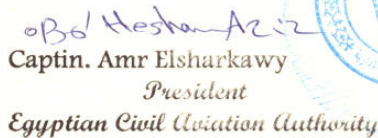 Hesham Aziz
Captin. Amr Elsharkawy
President
Egyptian Civil Aviation Authority